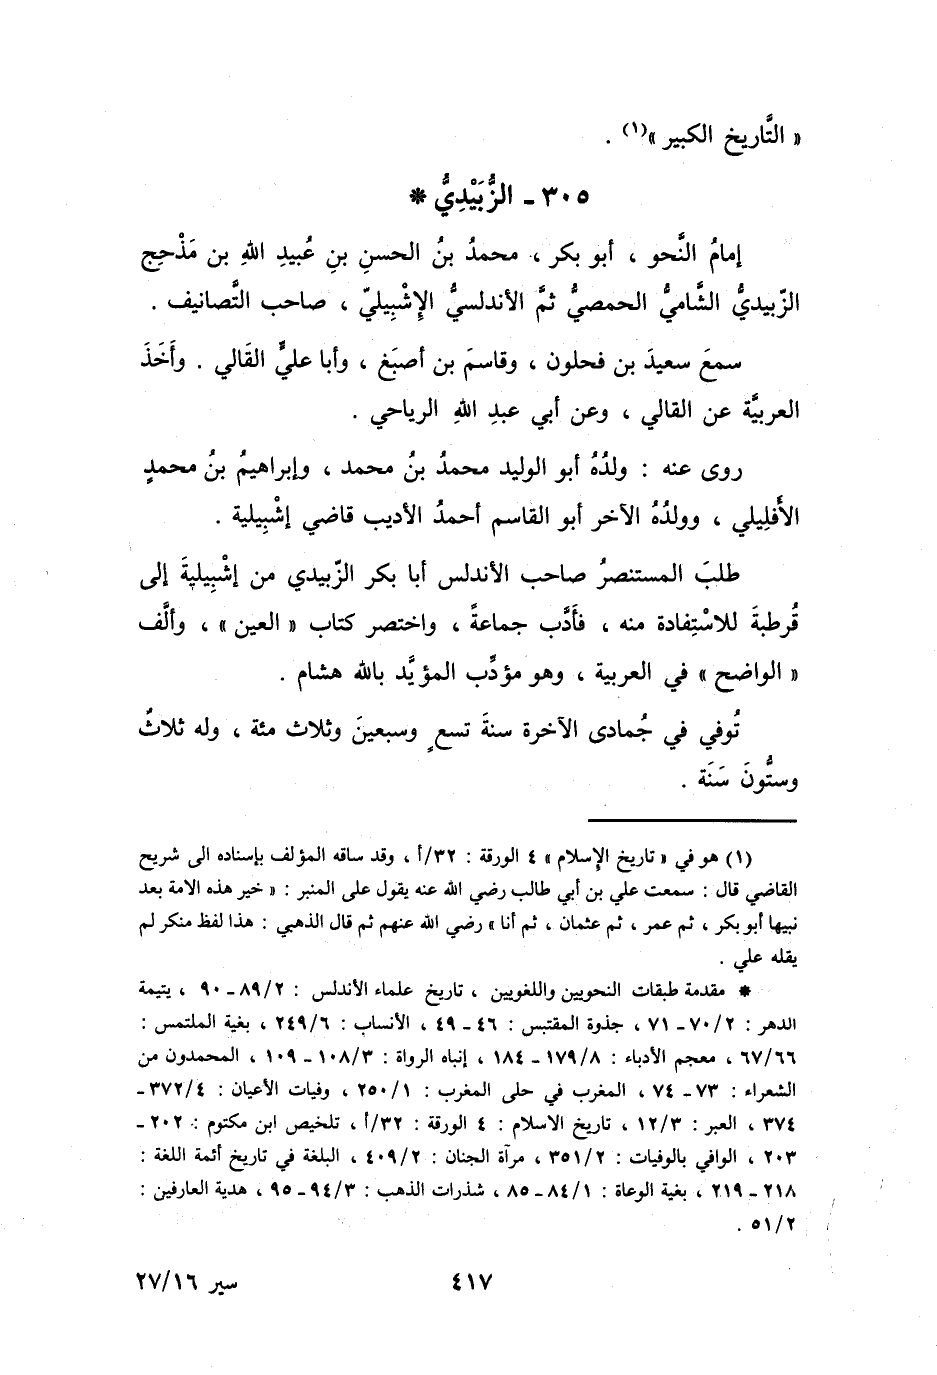 « التَّاريخ الكبير »(١) .
٣٠٥ - الزُّبَيْدِيُّ *
إمامُ النَّحو ، أبو بكر ، محمدُ بنُ الحسنِ بنِ عُبيدِ اللهِ بن مَذْحِجِ
الزّبيديُّ الشَّاميُّ الحمصيُّ ثمَّ الأندلسيُّ الإِشْبِيليّ ، صاحب التَّصانيف .
سمعَ سعيدَ بن فحلون ، وقاسمَ بن أصبَغ ، وأبا عليٍّ القَالي . وأَخَذَ
العربيَّة عن القالي ، وعن أبي عبدِ اللهِ الرياحي .
روى عنه : ولدُهُ أبو الوليد محمدُ بنُ محمد ، وإبراهيمُ بنُ محمدٍ
الأَفلِيلي ، وولدُهُ الآخر أبو القاسم أحمدُ الأديب قاضي إشْبِيلية .
طلبَ المستنصرُ صاحب الأندلس أبا بكر الزّبيدي من إشْبِيليةَ إلى
قُرطبةَ للاسْتِفادة منه ، فأدَّب جماعةً ، واختصر كتاب « العين » ، وألَّف
« الواضح » في العربية ، وهو مؤدِّب المؤيَّد بالله هشام .
تُوفي في جُمادى الآخرة سنةَ تسعٍ وسبعينَ وثلاث مئة ، وله ثلاثٌ
وستُّونَ سَنَة .
(١) هو في « تاريخ الإِسلام » ٤ الورقة : ٣٢/أ ، وقد ساقه المؤلف بإسناده الى شريح
القاضي قال : سمعت علي بن أبي طالب رضي الله عنه يقول على المنبر : « خير هذه الامة بعد
نبيها أبو بكر ، ثم عمر ، ثم عثمان ، ثم أنا » رضي الله عنهم ثم قال الذهبي : هذا لفظ منكر لم
يقله علي .
* مقدمة طبقات النحويين واللغويين ، تاريخ علماء الأندلس : ٨٩/٢ - ٩٠ ، يتيمة
الدهر : ٧٠/٢ - ٧١ ، جذوة المقتبس : ٤٦ - ٤٩ ، الأنساب : ٢٤٩/٦ ، بغية الملتمس :
٦٧/٦٦ ، معجم الأدباء : ١٧٩/٨ - ١٨٤ ، إنباه الرواة : ١٠٨/٣ - ١٠٩ ، المحمدون من
الشعراء : ٧٣ - ٧٤ ، المغرب في حلى المغرب : ٢٥٠/١ ، وفيات الأعيان : ٣٧٢/٤ -
٣٧٤ ، العبر : ١٢/٣ ، تاريخ الاسلام : ٤ الورقة : ٣٢/أ ، تلخيص ابن مكتوم : ٢٠٢ -
٢٠٣ ، الوافي بالوفيات : ٣٥١/٢ ، مرآة الجنان : ٤٠٩/٢ ، البلغة في تاريخ أئمة اللغة :
٢١٨ - ٢١٩ ، بغية الوعاة : ٨٤/١ - ٨٥ ، شذرات الذهب : ٩٤/٣ - ٩٥ ، هدية العارفين :
٥١/٢ .
٤١٧
سير ٢٧/١٦